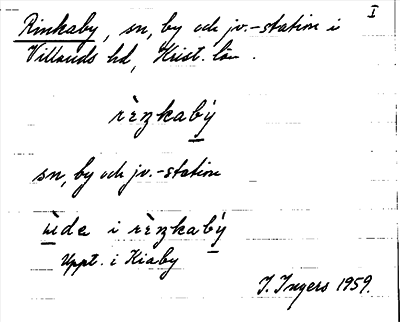 I
Rinkaby, sn, by och jv.-station i
Villands hd, Krist. län.
rèzkabý
sn, by och jv.-station
ùda i rèzkabý
Uppt. i Kiaby
I. Ingers 1959.